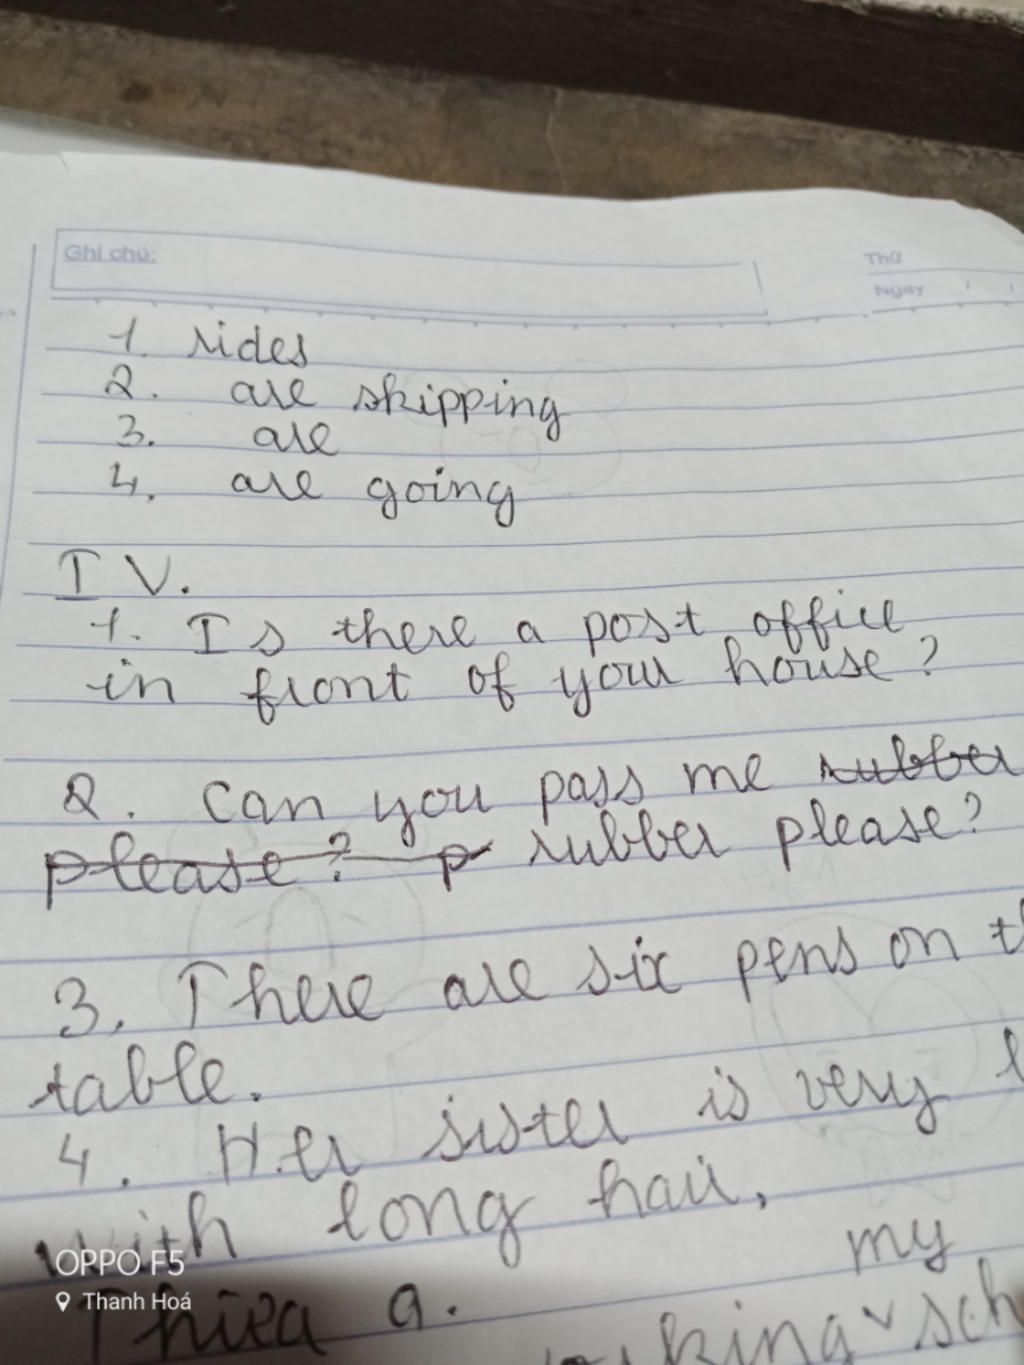 Ghi chú:
Thứ
Ngày
1. rides
2. are skipping
3. are
4. are going
IV.
1. Is there a post office
in front of your house?
2. Can you pass me rubber
please? p rubber please?
3. There are six pens on
table.
4. Her sister is very
with long hair,
my
OPPO F5
Thanh Hoá